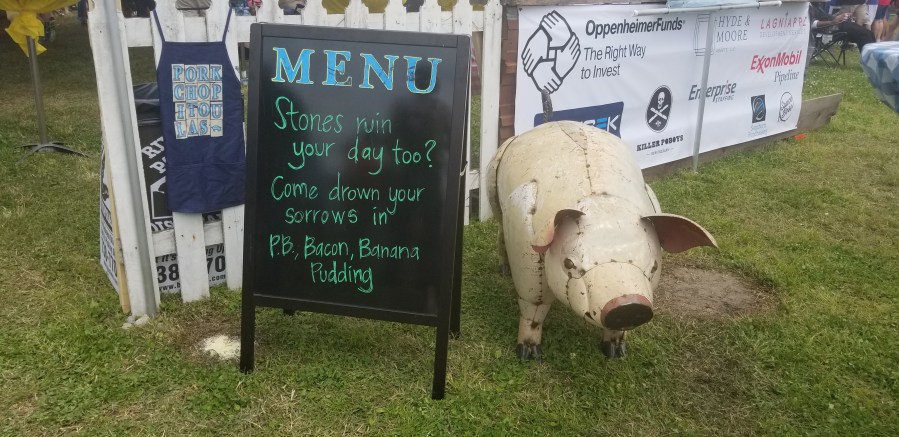 PORK
CHOP
ITOU
LAS
MENU
Stones ruin
your day too?
Come drown your
sorrows in
P.B., Bacon, Banana
Pudding
OppenheimerFunds®
The Right Way
to Invest
HYDE
& MOORE
LAGNIAPPE
ExxonMobil
Pipeline
Enterprise
KILLER POBOYS